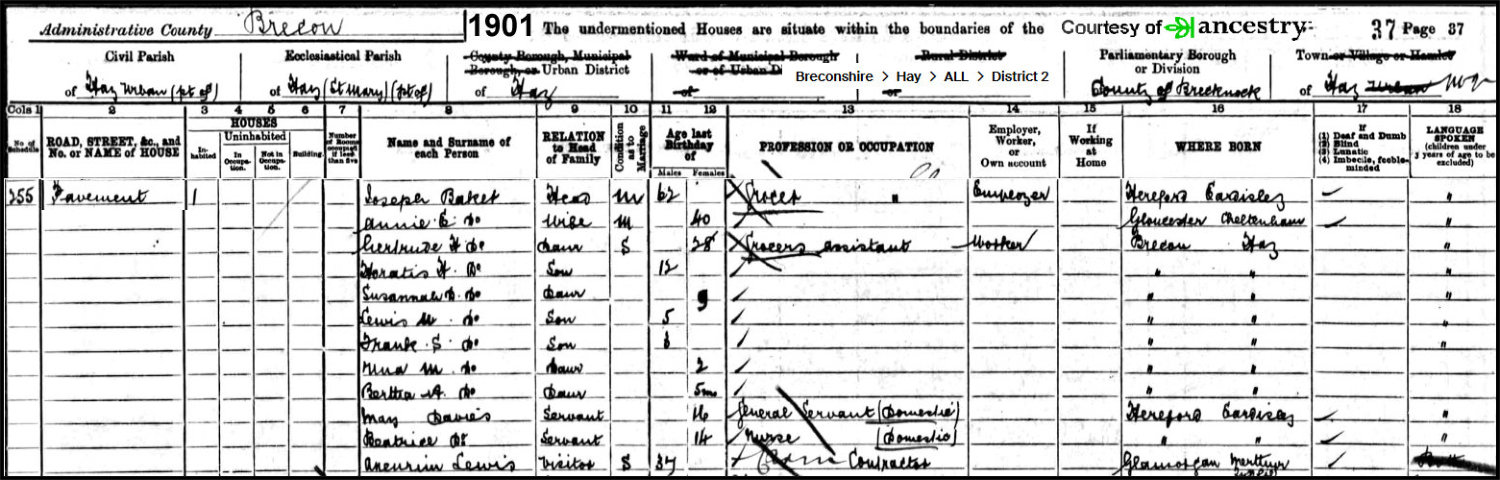 Administrative County Brecon 1901 The undermentioned Houses are situate within the boundaries of the Courtesy of ancestry 37 Page 37
Civil Parish Ecclesiastical Parish County Borough, Municipal Borough, or Urban District Ward of Municipal Borough or of Urban Di Rural District Parliamentary Borough or Division Town or Village or Hamlet
Breconshire > Hay > ALL > District 2
of Hay Urban (pt of) of Hay (St Mary) (pt of) of Hay of of County of Brecknock of Hay Urban
Cols 1 2 3 4 5 6 7 8 9 10 11 12 13 14 15 16 17 18
No. of Schedule ROAD, STREET, &c., and No. or NAME of HOUSE HOUSES Inhabited Uninhabited In Occupation. Not in Occupation. Building. Number of Rooms occupied if less than five Name and Surname of each Person RELATION to Head of Family Condition as to Marriage Age last Birthday of Males Females PROFESSION OR OCCUPATION Employer, Worker, or Own account If Working at Home WHERE BORN If (1) Deaf and Dumb (2) Blind (3) Lunatic (4) Imbecile, feeble-minded LANGUAGE SPOKEN (children under 3 years of age to be excluded)
255 Pavement 1 Joseph Baker Head M 62 Grocer " Employer Hereford Eardisley "
Annie E. Do Wife M 40 Gloucester Cheltenham "
Gertrude H Do Daur S 28 Grocers assistant Worker Brecon Hay "
Horatio H. Do Son 12 " " "
Susannah Do Daur 9 " " "
Lewis W. Do Son 5 " " "
Frank S. Do Son 3 " " "
Nina M. Do Daur 2 " "
Bertha A. Do Daur 5m " "
May Davies Servant 16 General Servant (Domestic) Hereford Eardisley "
Beatrice Do Servant 14 Nurse (Domestic) " " "
Aneurin Lewis Visitor S 37 Contractor Glamorgan Merthyr